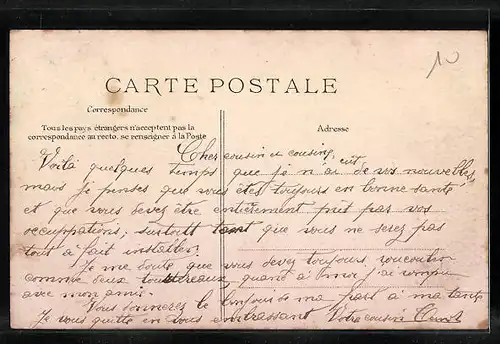 10
CARTE POSTALE
Correspondance
Tous les pays étrangers n'acceptent pas la
correspondance au recto, se renseigner à la Poste
Adresse
Cher cousin et cousine,
Voilà quelques temps que je n'ai de vos nouvelles
mais je penses que vous êtes toujours en bonne santé
et que vous devez être entièrement pris par vos
occupations, surtout tant que vous ne serez pas
tout à fait installer.
Je me doute que vous devez toujours roucouler
comme deux tourtereaux, quand à moi j'ai rompu
avec mon amie.
Vous donnerez le bonjour de ma part à ma tante
Je vous quitte en vous embrassant Votre cousin